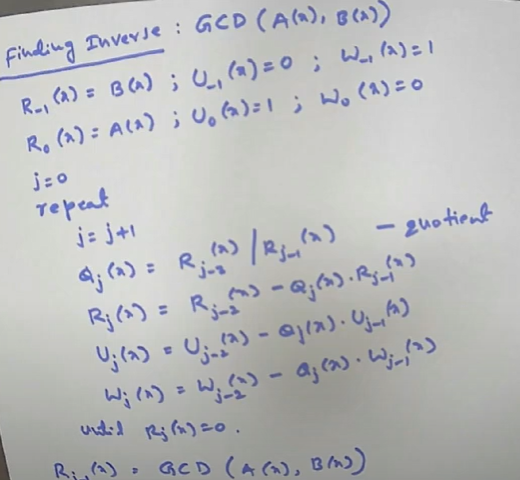 Finding Inverse : GCD (A(x), B(x))
R₋₁(x) = B(x) ; U₋₁(x)=0 ; W₋₁(x)=1
R₀(x) = A(x) ; U₀(x)=1 ; W₀(x)=0
j=0
repeat
j = j+1
Qⱼ(x) = Rⱼ₋₂(x) / Rⱼ₋₁(x) - quotient
Rⱼ(x) = Rⱼ₋₂(x) - Qⱼ(x).Rⱼ₋₁(x)
Uⱼ(x) = Uⱼ₋₂(x) - Qⱼ(x).Uⱼ₋₁(x)
Wⱼ(x) = Wⱼ₋₂(x) - Qⱼ(x).Wⱼ₋₁(x)
until Rⱼ(x)=0.
Rⱼ₋₁(x) = GCD (A(x), B(x))